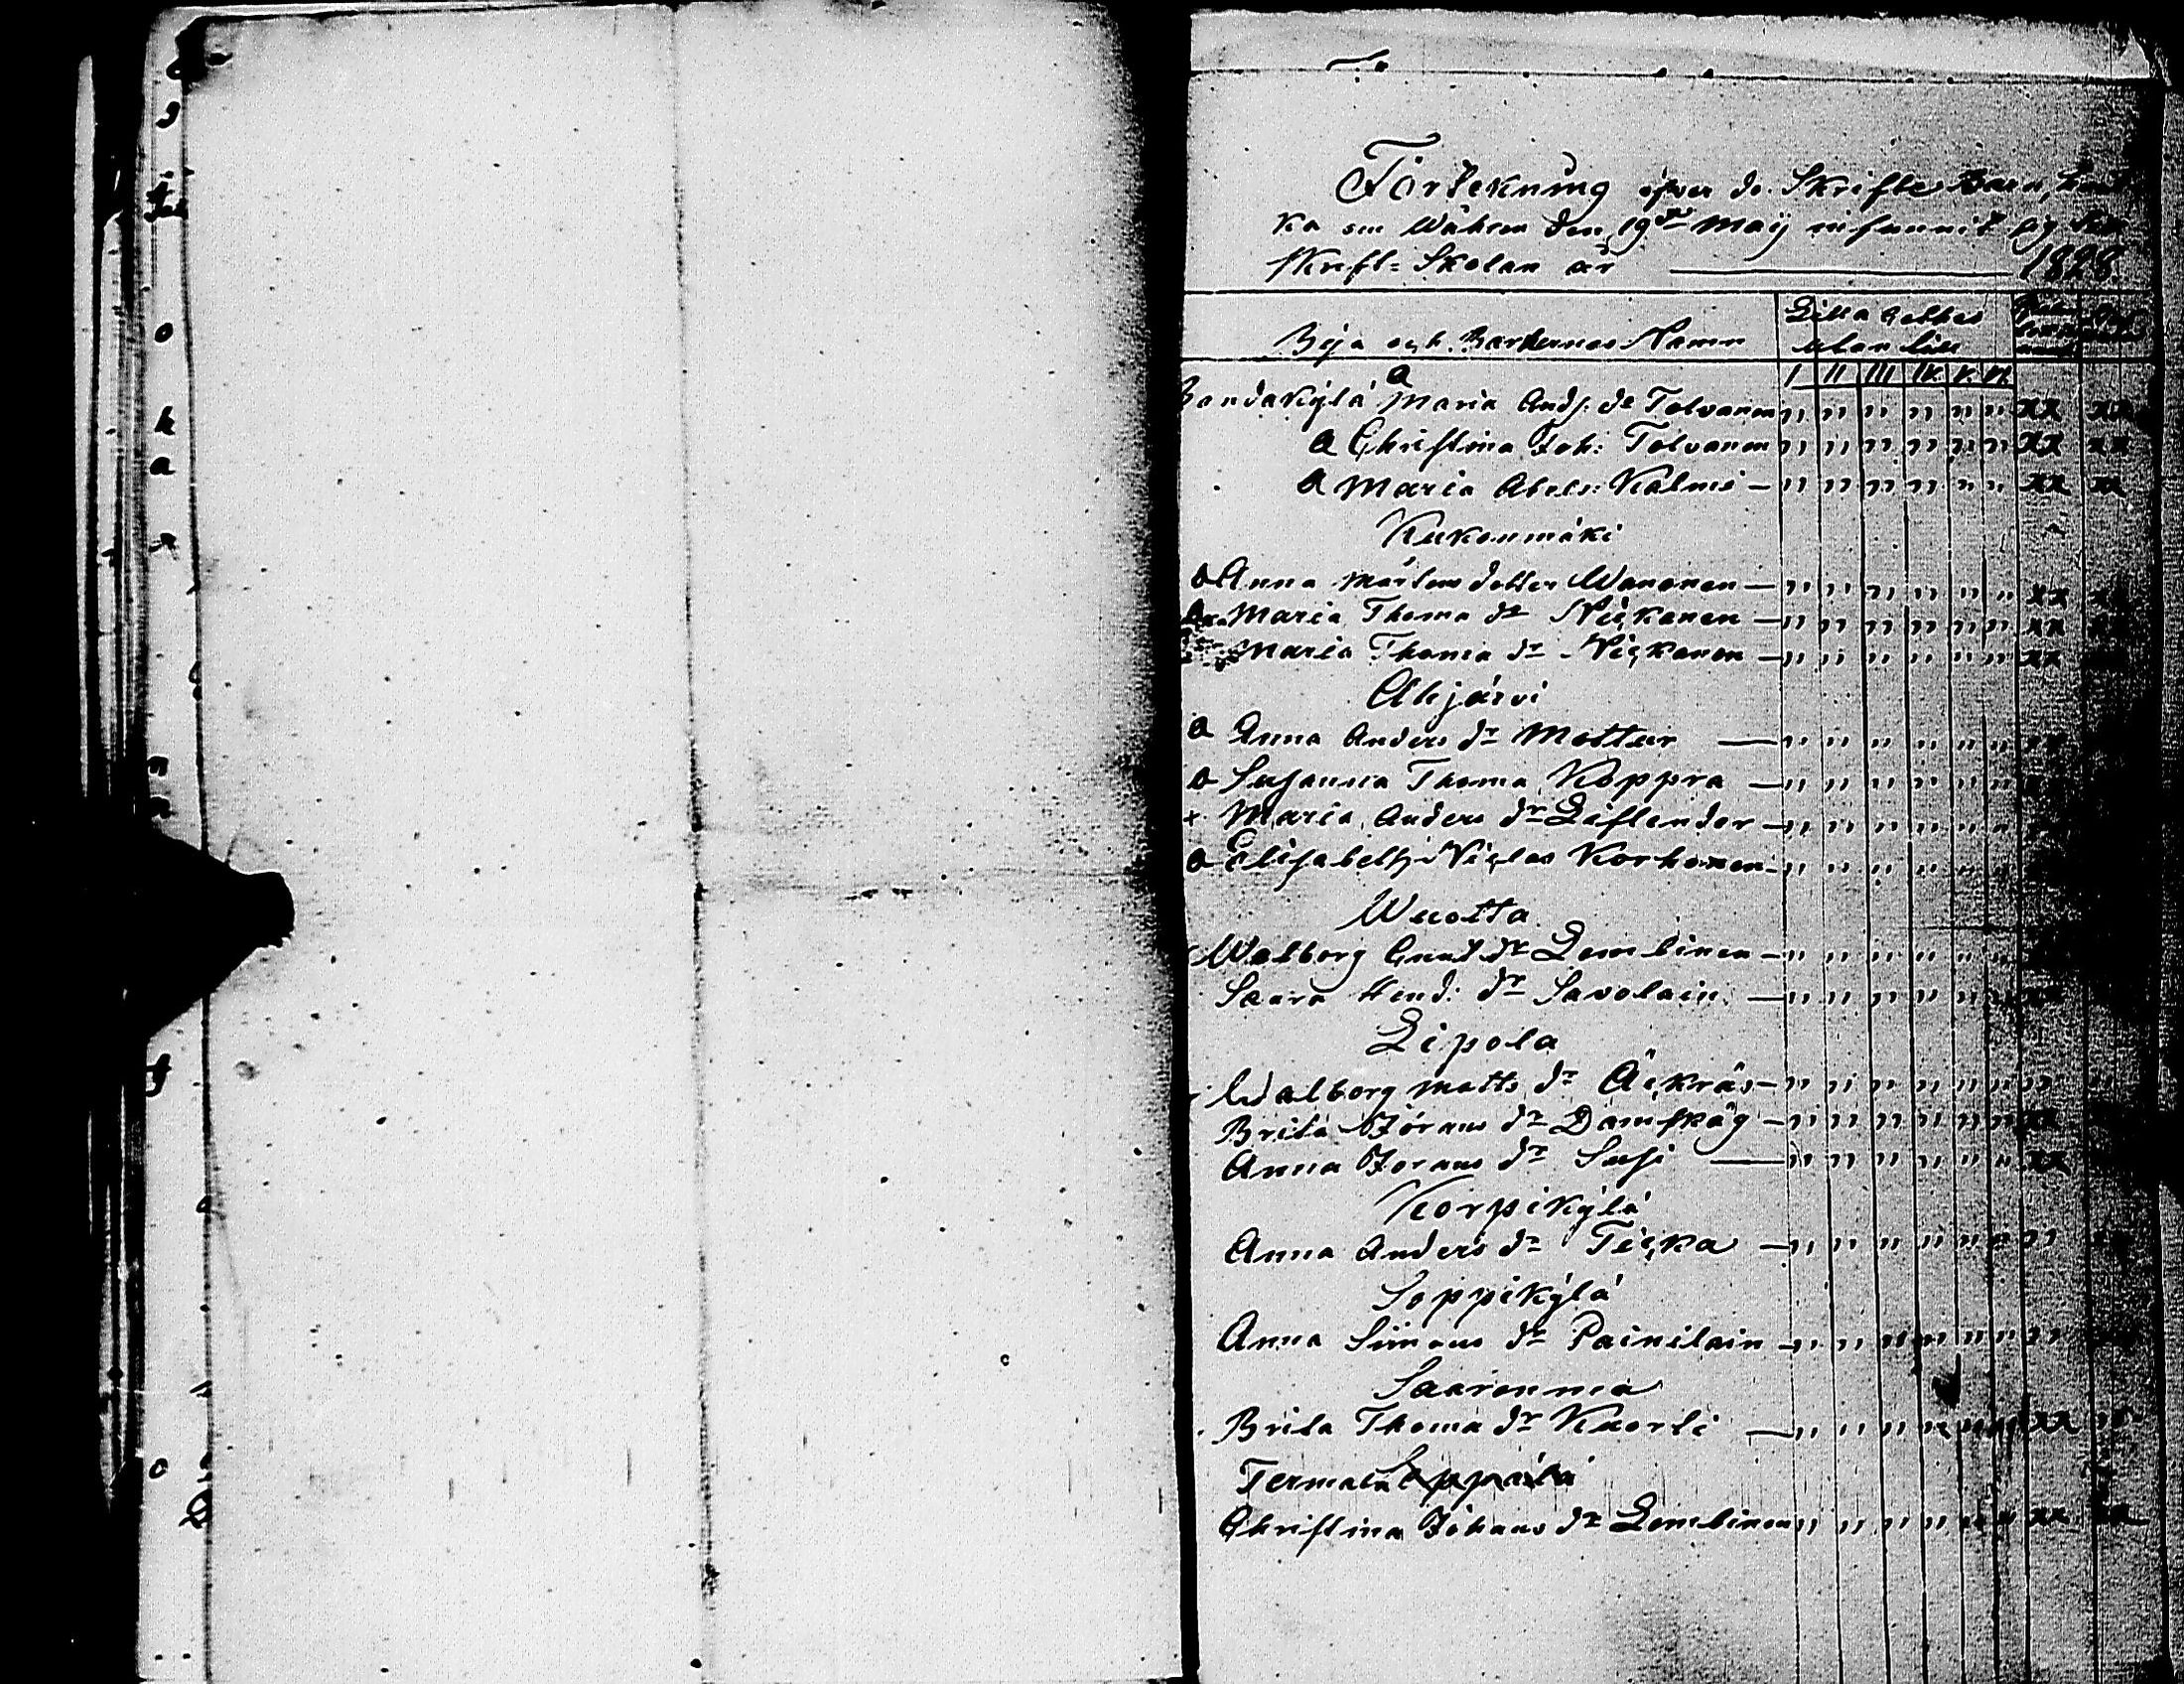 Förtekning öfver de Skrifte Barn, hvil
ka som Wåhren den 19de Maij infunnit sig
Skrift-Skolan år 1828
Byja och Barnernas Namn
Lilla Cathes
utan lius
I II III IV. V. VI.
Randakylä a Maria Ands: dr Tolvanen " " " " " " xx xx
a Christina Joh: Tolvanen " " " " " " xx xx
a Maria Abels: Kalmi — " " " " " " xx xx
Kukonmäki
a Anna Mårtens dotter Wananen — " " " " " " xx
Maria Thoma dr Nickanen — " " " " " " xx
Maria Thoma dr Nickanen — " " " " " " xx
Ahijärvi
a Anna Anders dr Mottur — " " " " " "
a Susanna Thoma Koppra — " " " " " "
x Maria Anders dr Liflender — " " " " " "
a Elisabeth Niclas Korhonen — " " " " " "
Wuotta
Walborg Cnut dr Lembinen — " " " " " "
Saara Hend: dr Savolain. — " " " " " "
Lipola
Walborg Matts dr Äckräs — " " " " " "
Brita Jörans dr Damskäg — " " " " " " xx
Anna Jorans dr Susi — " " " " " " xx
Korpikylä
Anna Anders dr Ticka — " " " " " " "
Soppikylä
Anna Simons dr Painilain — " " " " " " "
Saarenma
Brita Thoma dr Kuorti — " " " " " " xx
Termala
Christina Johans dr Lembinen " " " " " " xx xx